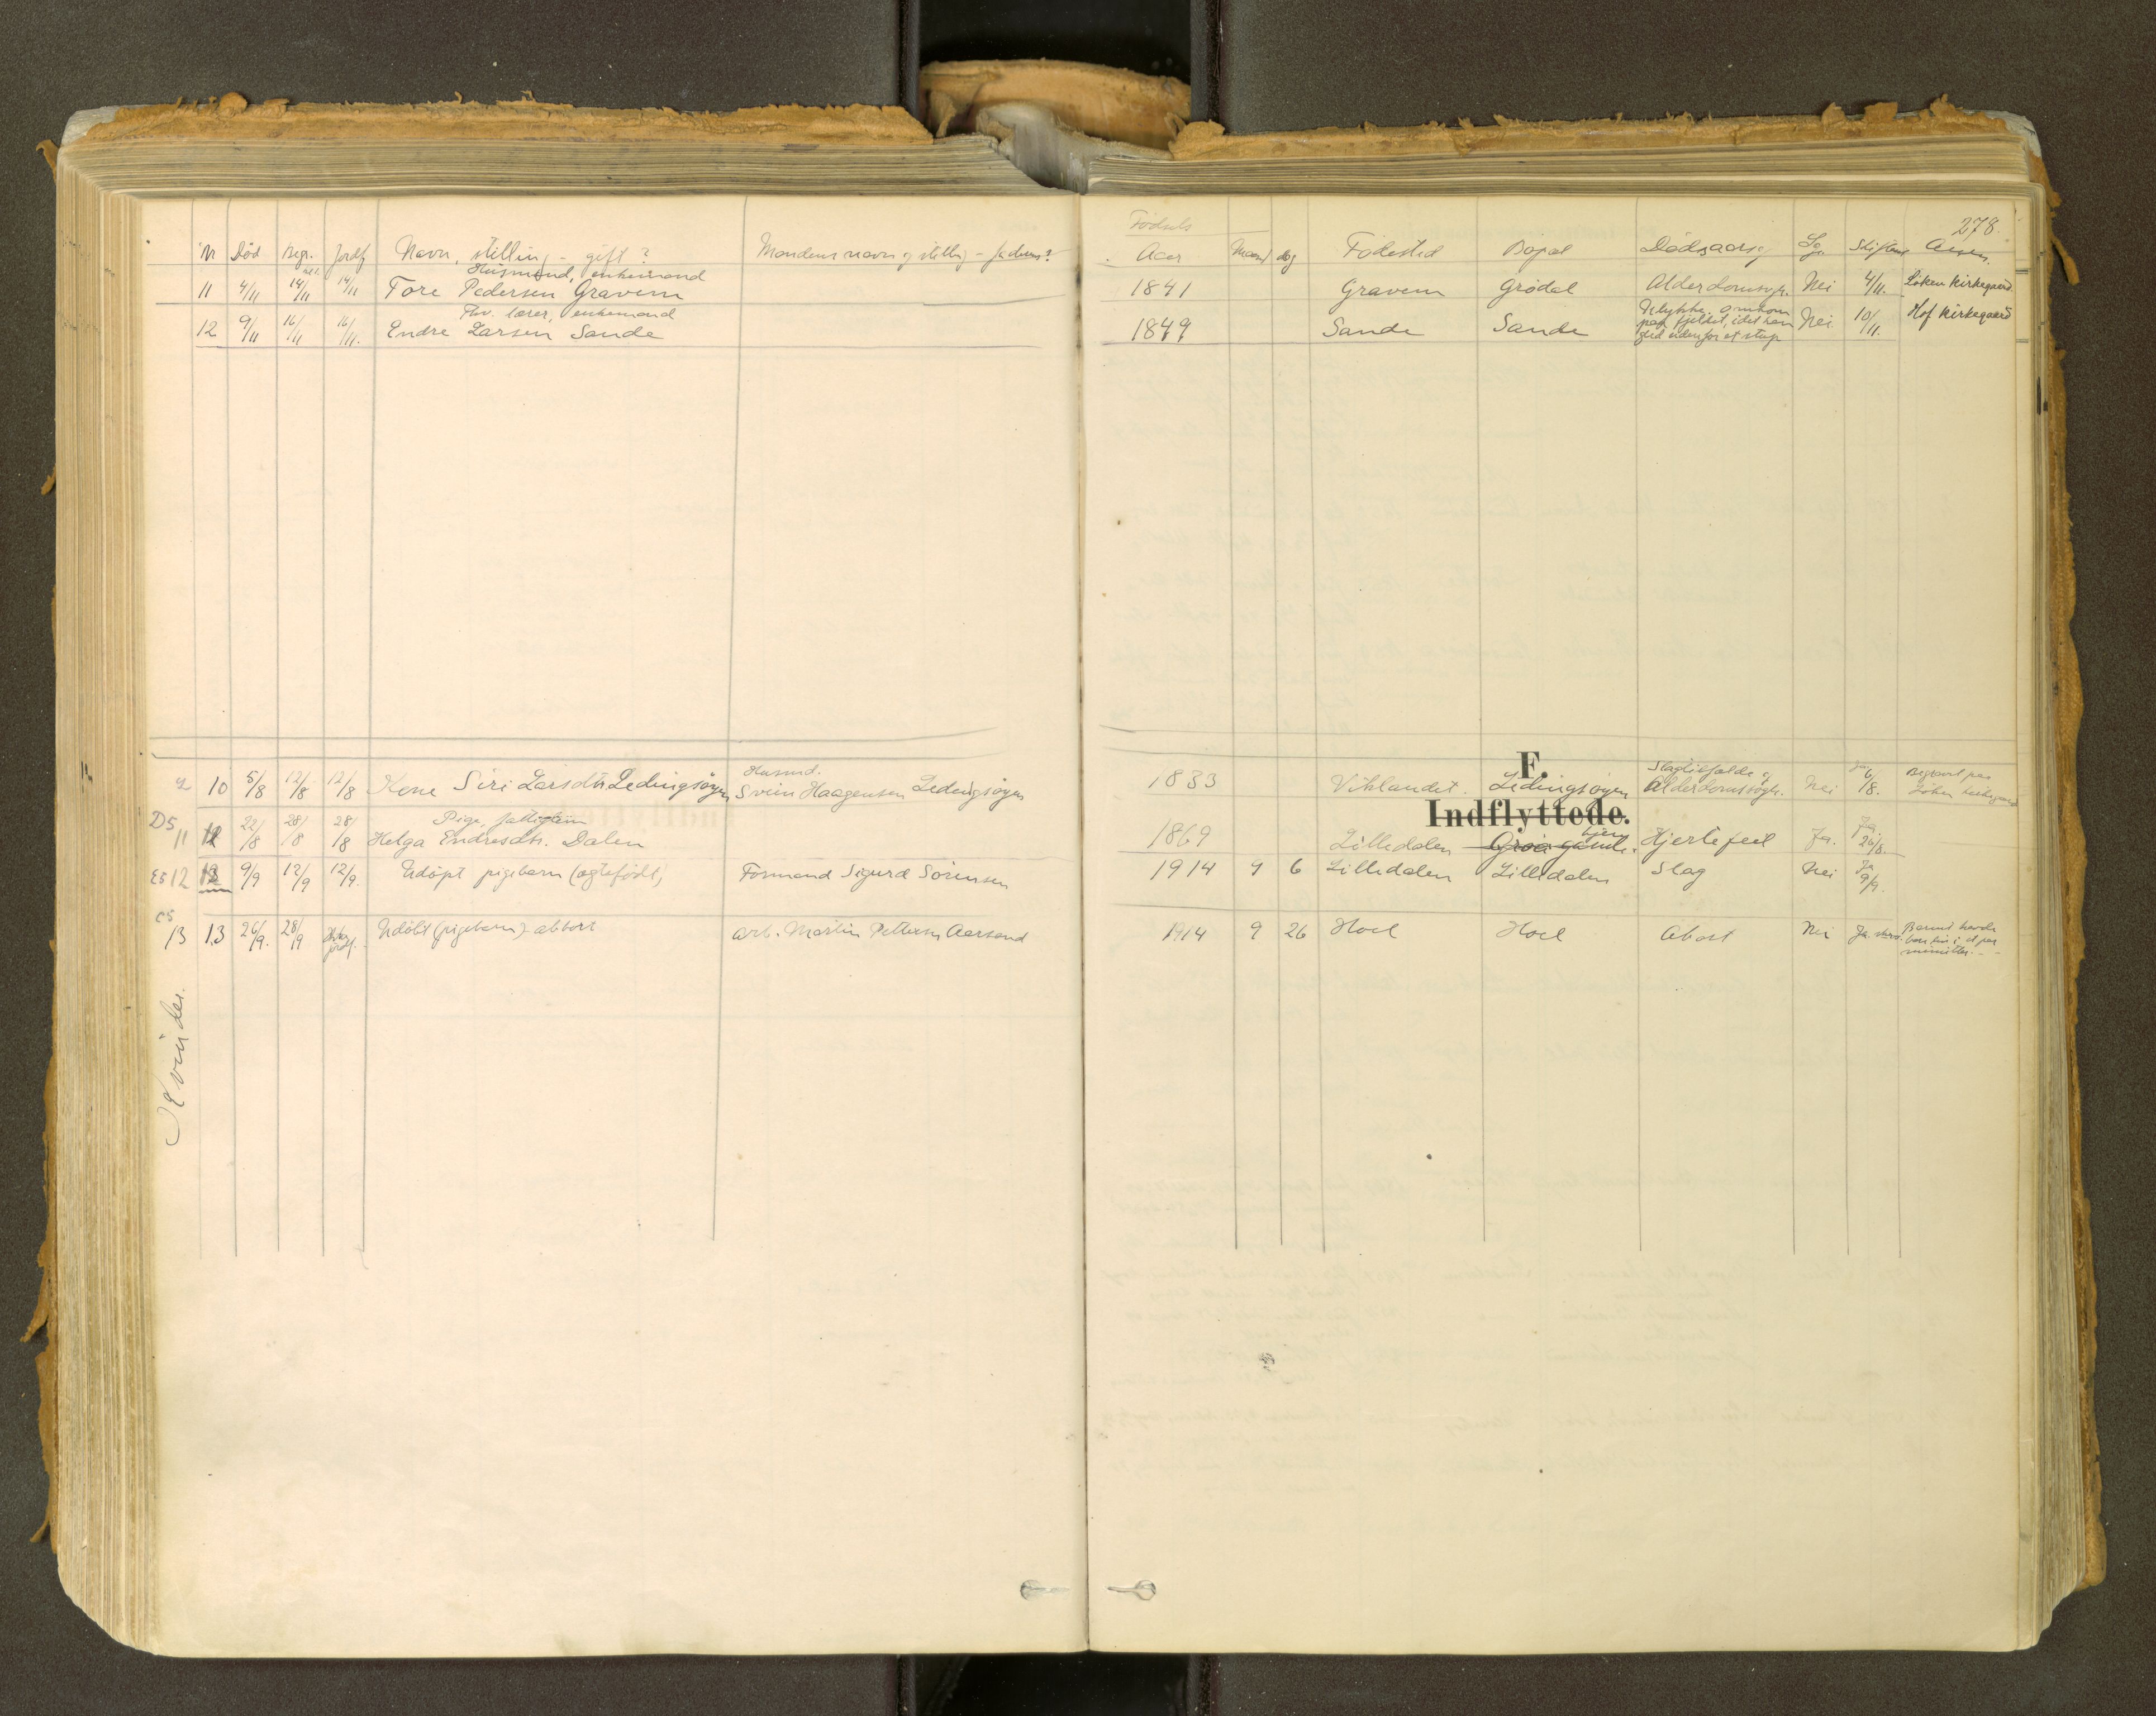 278.
Nr Død Begr. Jordf Navn, stilling - gift? Mandens navn og stilling - faderens? Fødsels Aar Maaned dag Fødested Bopæl Dødsaarsag Læge Skiften Anm.
Husmand, enkemand
11 4/11 14/11 14/11 Tore Pedersen Gravem 1841 Gravem Grødal Alderdomssvgh. Nei 4/11. Løken Kirkegaard
Fhv. lærer, enkemand
12 9/11 16/11 16/11. Endre Larsen Sande 1849 Sande Sande Ulykke, omkom paa fjeldet, idet han gled utenfor et stup Nei 10/11. Hof Kirkegaard
F.
Indflyttede.
Husmd.
10 5/8 12/8 12/8 Kone Siri Larsdtr. Ledingsøyen Svein Haagensen Ledingsøyen 1833 Viklandet. Ledingsøyen Slagtilfælde og Alderdomssvgh. Nei 6/8. Begravet paa Løken kirkegaard
DS Pige, fattiglem
11 22/8 28/8 28/8 Helga Endresdtr. Dalen 1869 Lilledalen hjem. Hjertefeil Ja. Ja 26/8.
ES 12 9/9 12/9 12/9. Udøpt pigebarn (ægtefødt) Formand Sigurd Sørensen 1914 9 6 Lilledalen Lilledalen Slag Nei Ja 9/9.
CS
13 13 26/9. 28/9 Ikke jordf. Udøbt (pigebarn) abbort Arb. Martin Pettersen Aarsand 1914 9 26 Hoel Hoel Abort Nei Ja. Barnet havde minutter. -
Kvinder.